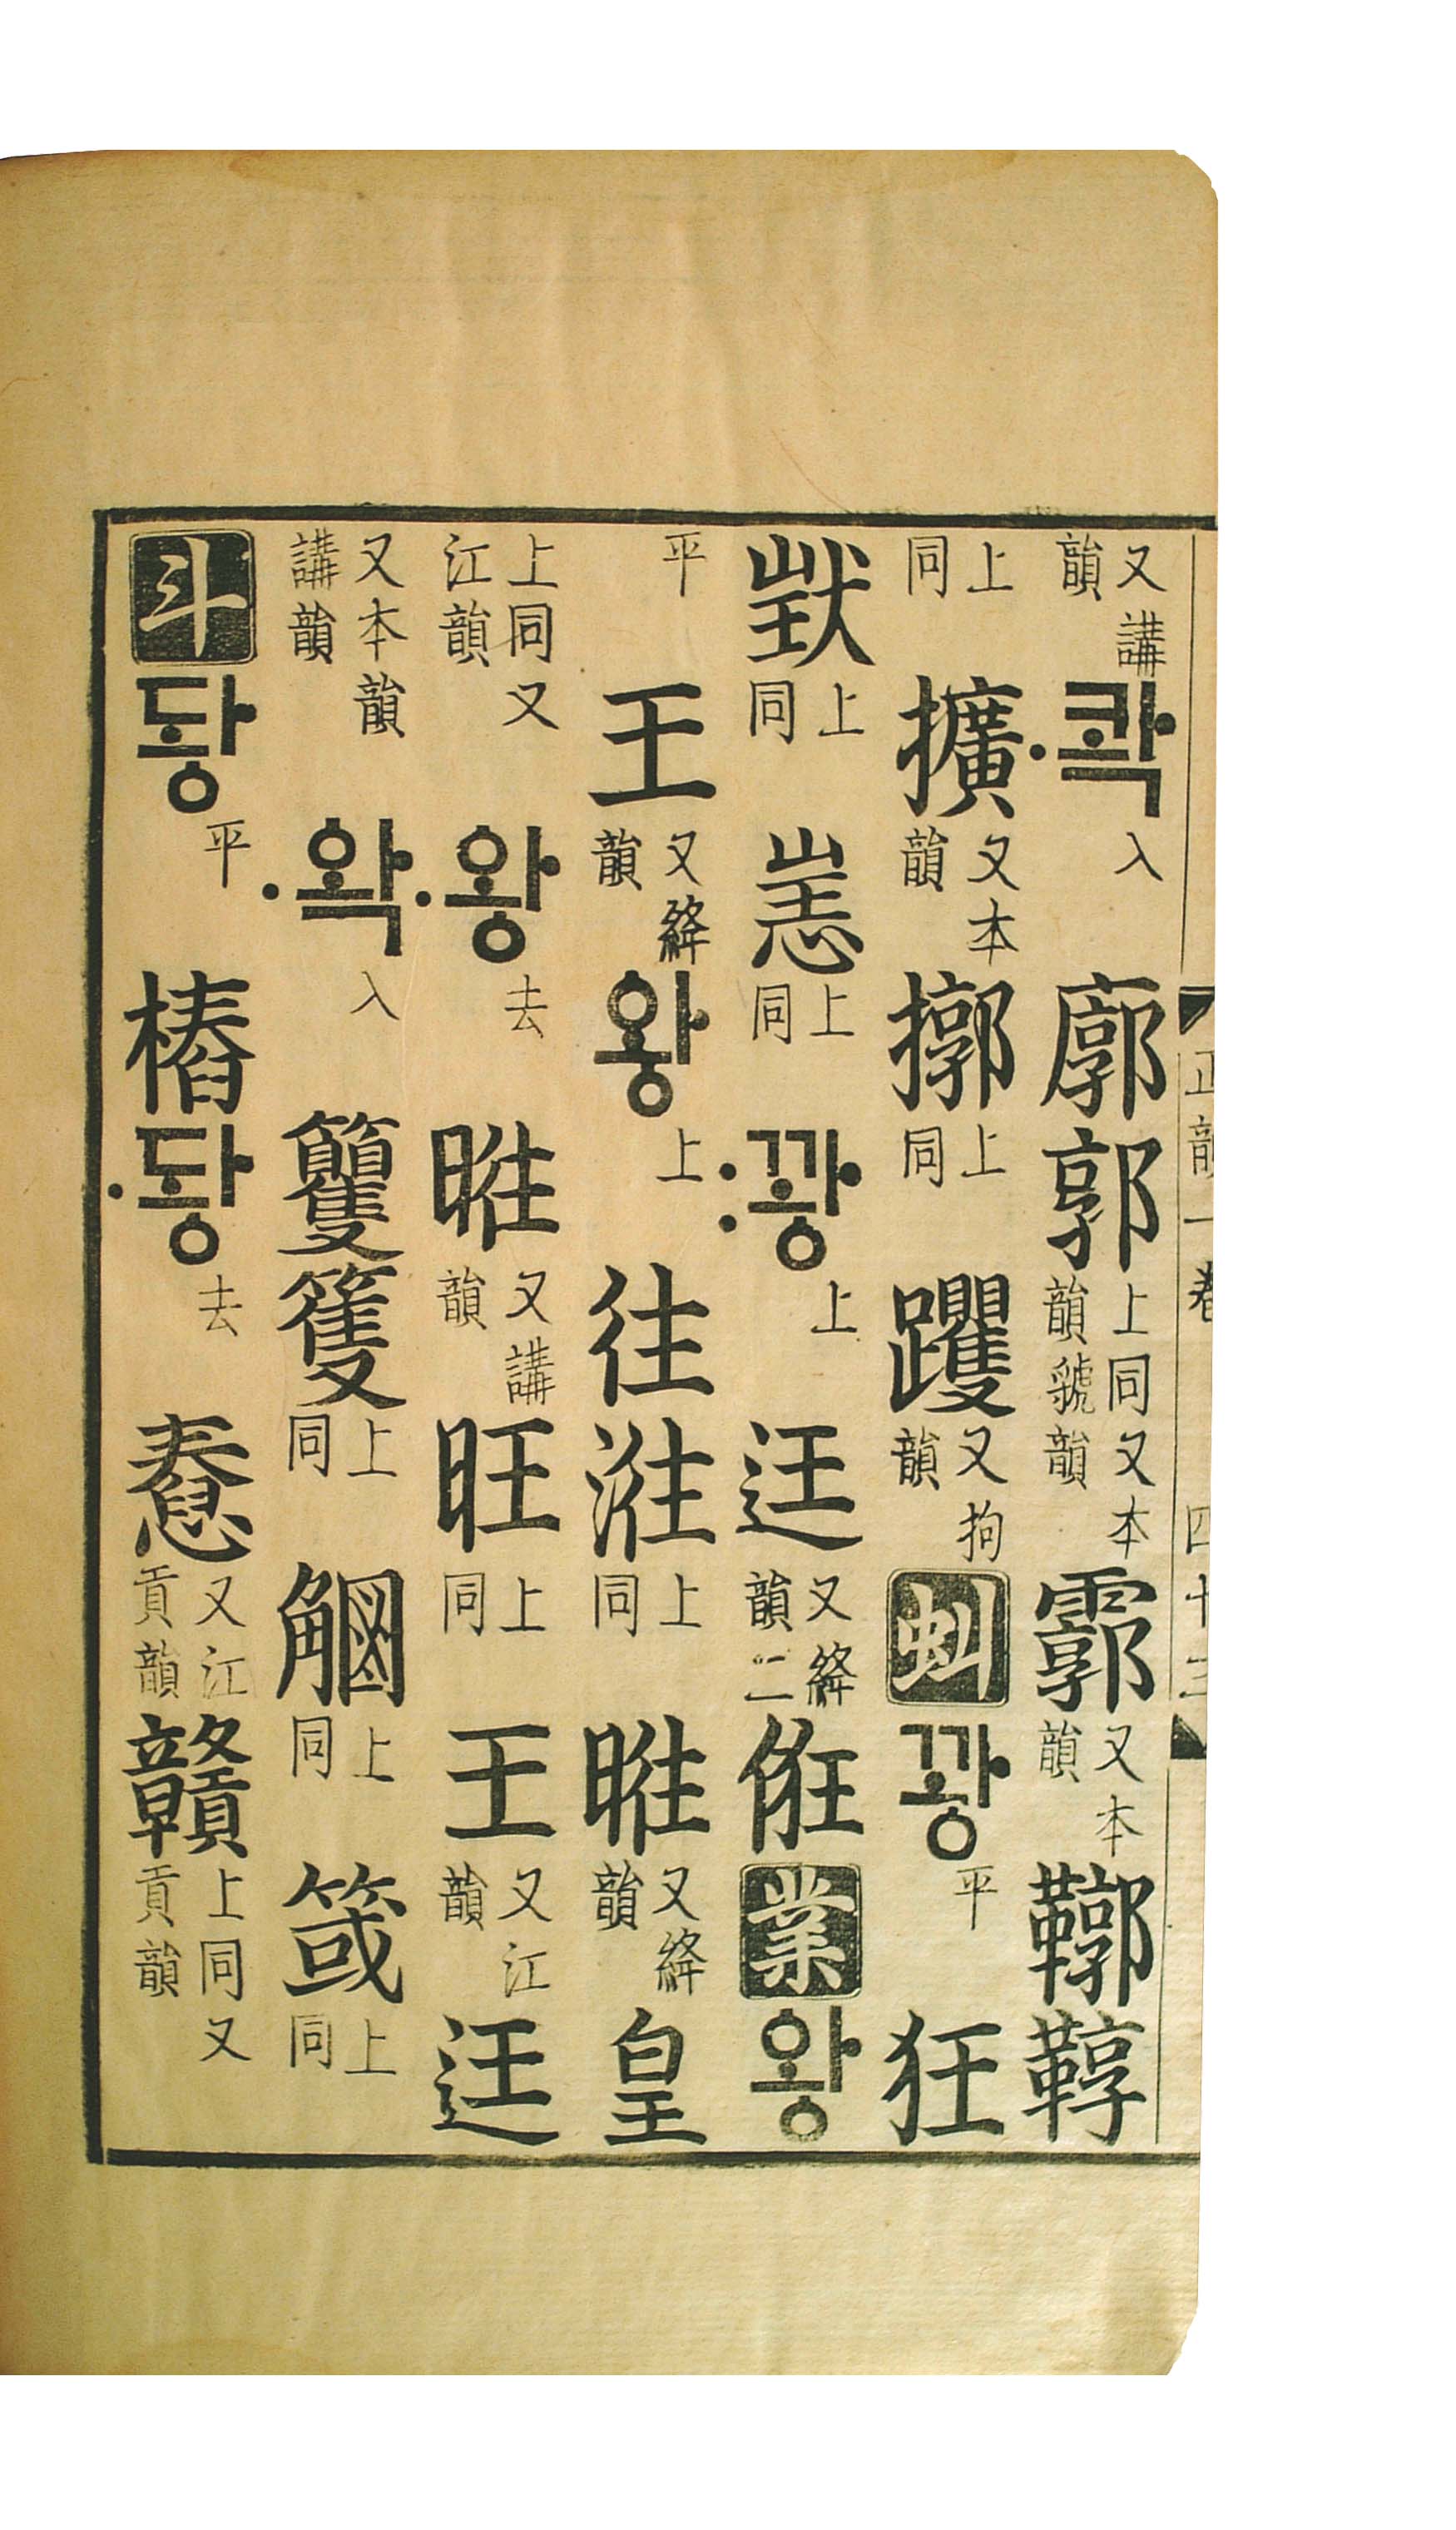 又講韻콱入廓郭上同又本韻虢韻霩又本韻鞹鞟
上同擴又本韻擴上同躩又拘韻虯꽝平狂
𤝵上同㤮上同꽝上迋又絳韻二俇業왕
平王又絳韻왕上往㳹上同暀又絳韻皇
上同又江韻왕去暀又講韻旺上同王又江韻迋
又本韻講韻왁入籰篗上同上同上同
斗돵平樁돵去惷又江貢韻贛上同又貢韻
正韻一卷 四十三